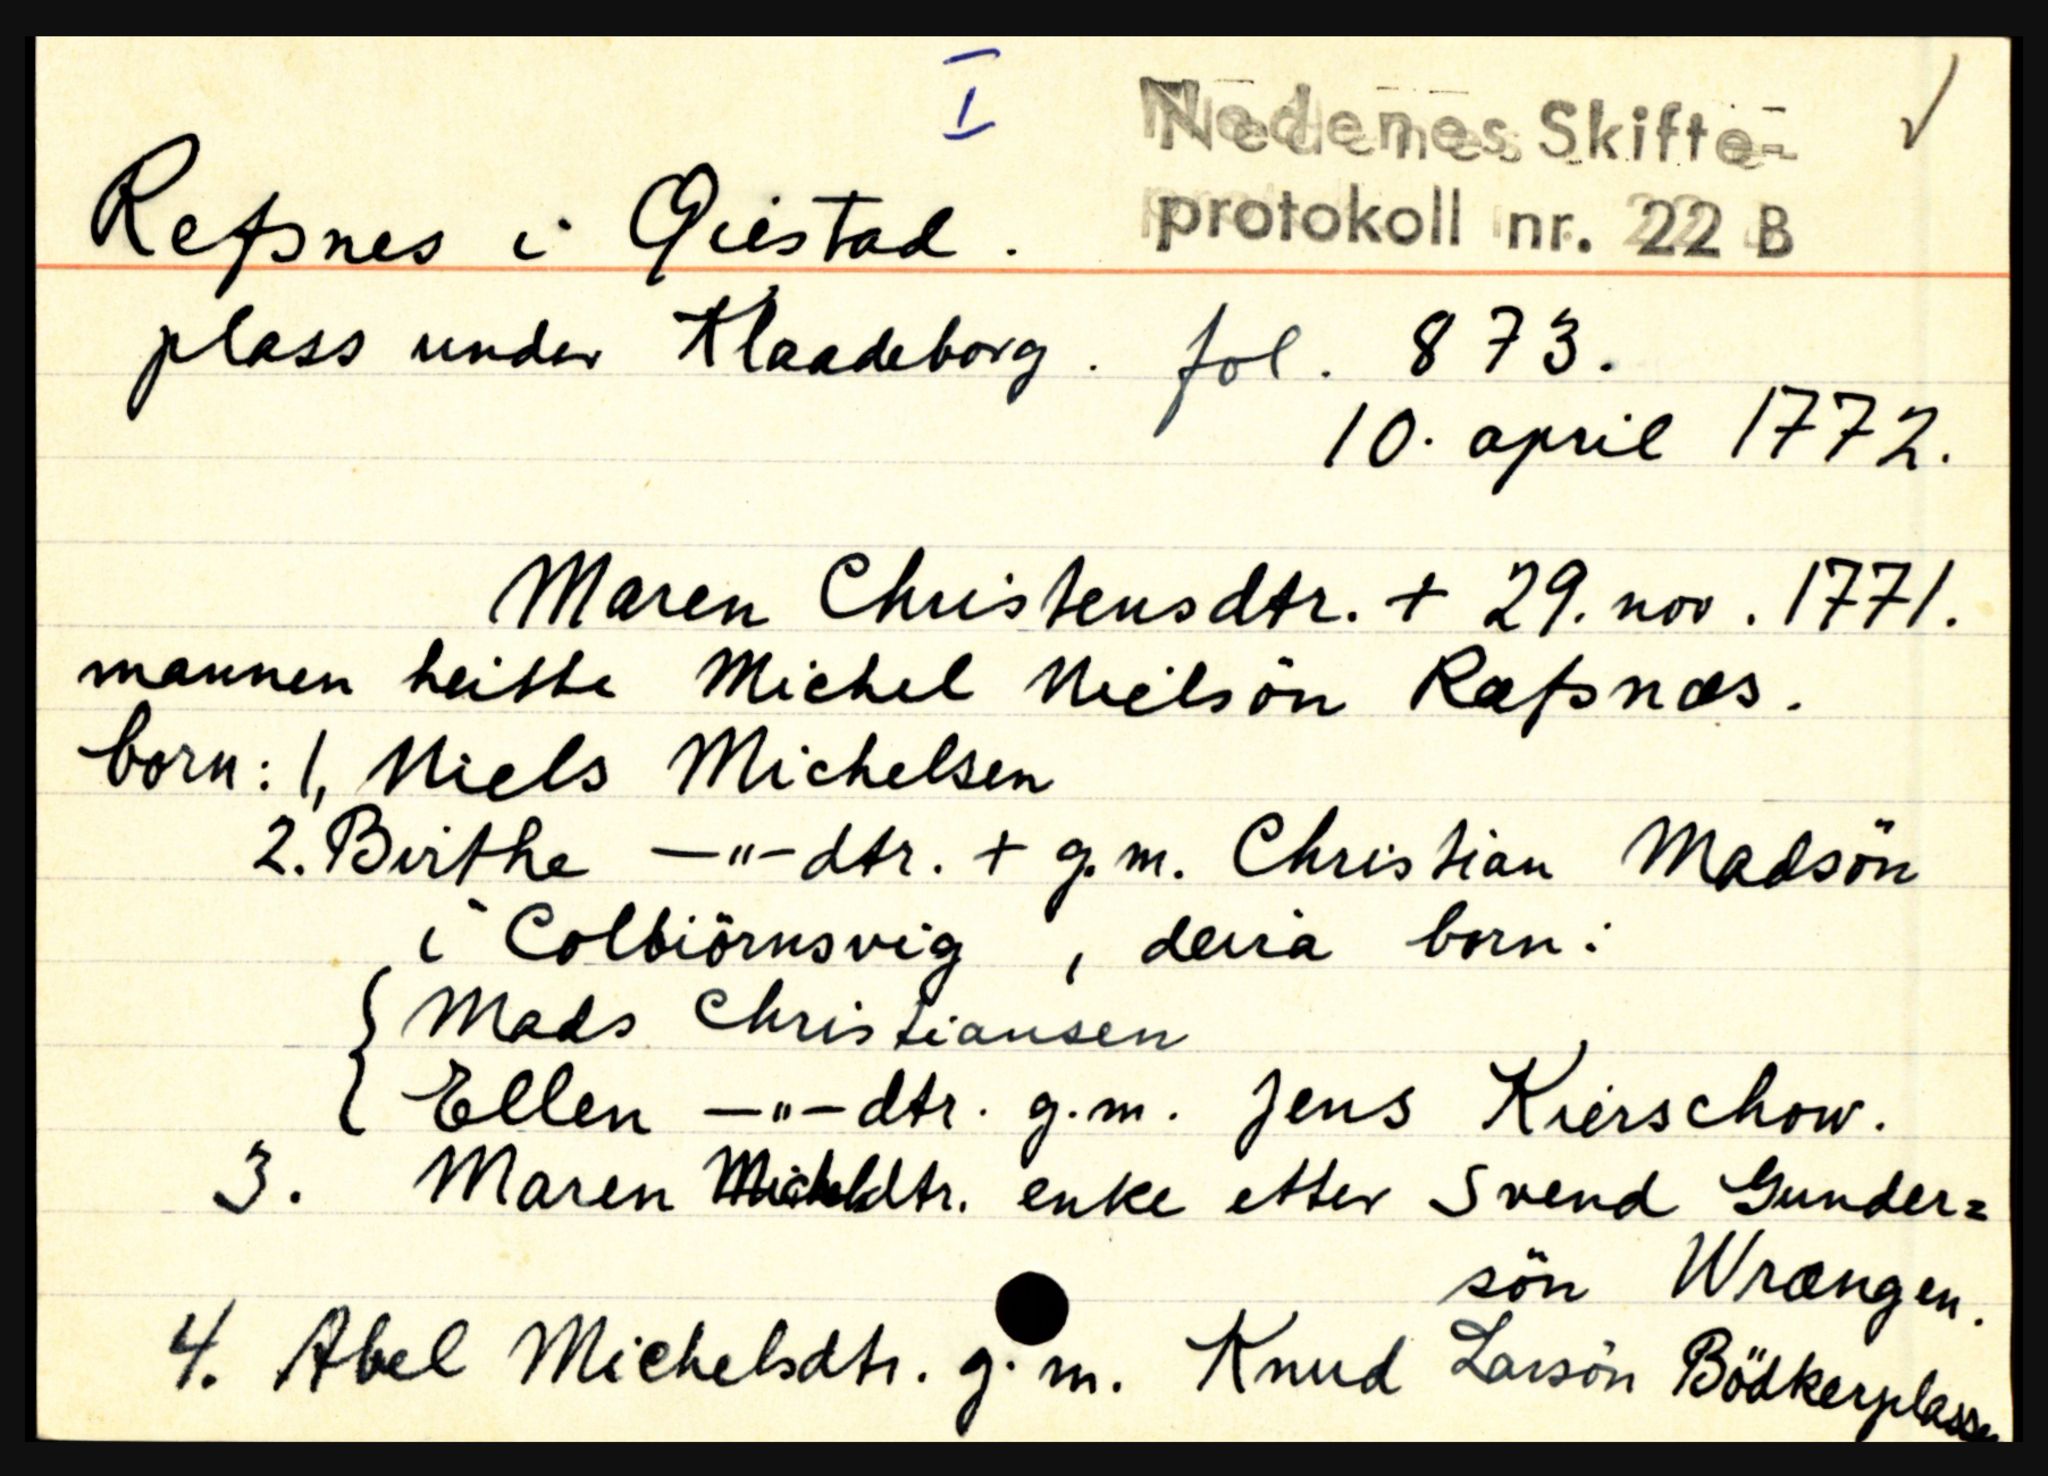 I
Nedenes Skifte-
protokoll nr. 22 B
√
Refsnes i Øiestad.
plass under Klaadeborg. fol. 873.
10. april 1772.
Maren Christensdtr. + 29. nov. 1771.
mannen heitte Michel Nielsön Ræfsnæs.
born: 1, Niels Michelsen
2. Birthe —"— dtr. + g.m. Christian Madsön
i Colbiörnsvig , deira born:
{ Mads Christiansen
{ Ellen —"— dtr. g.m. Jens Kierschow.
3. Maren Micheldtr. enke etter Svend Gunder=
sön Wrængen.
4. Abel Michelsdtr. g.m. Knud Larsön Bödkerplassen